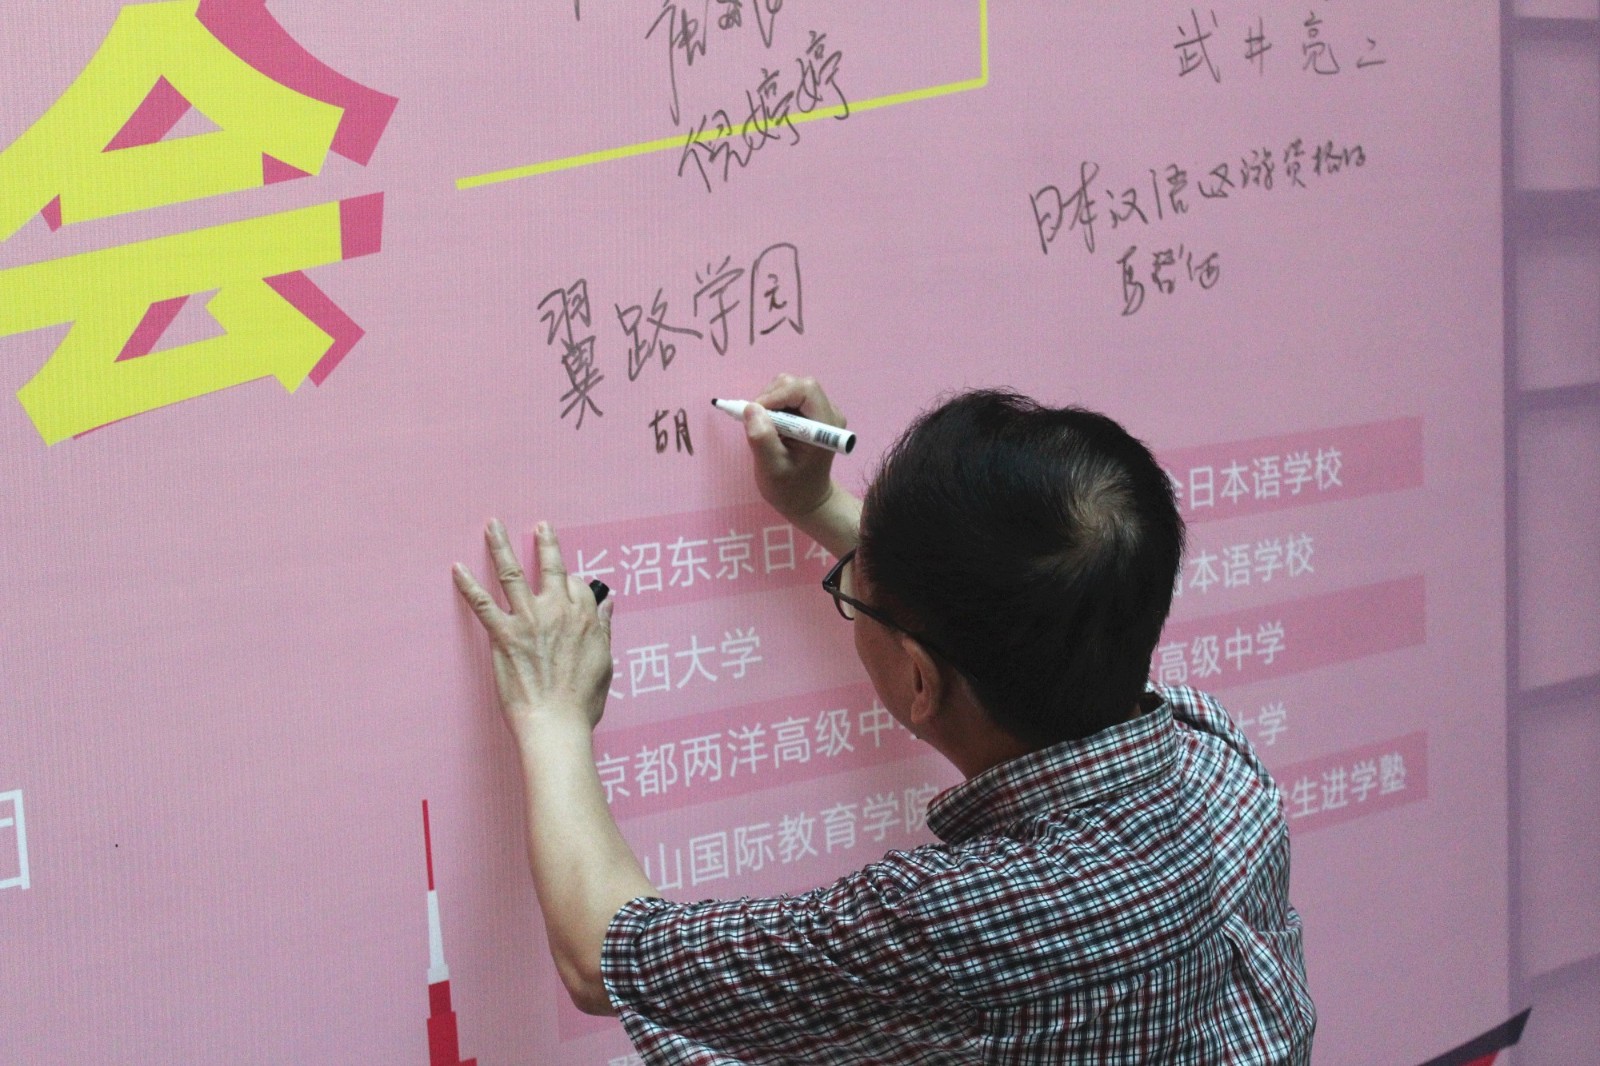 会
倪婷婷
武井亮二
日本汉语
翼路学园
胡
日本语学校
长沼东京日本
本语学校
西大学
高级中学
京都两洋高级中
大学
山国际教育学院
生进学塾